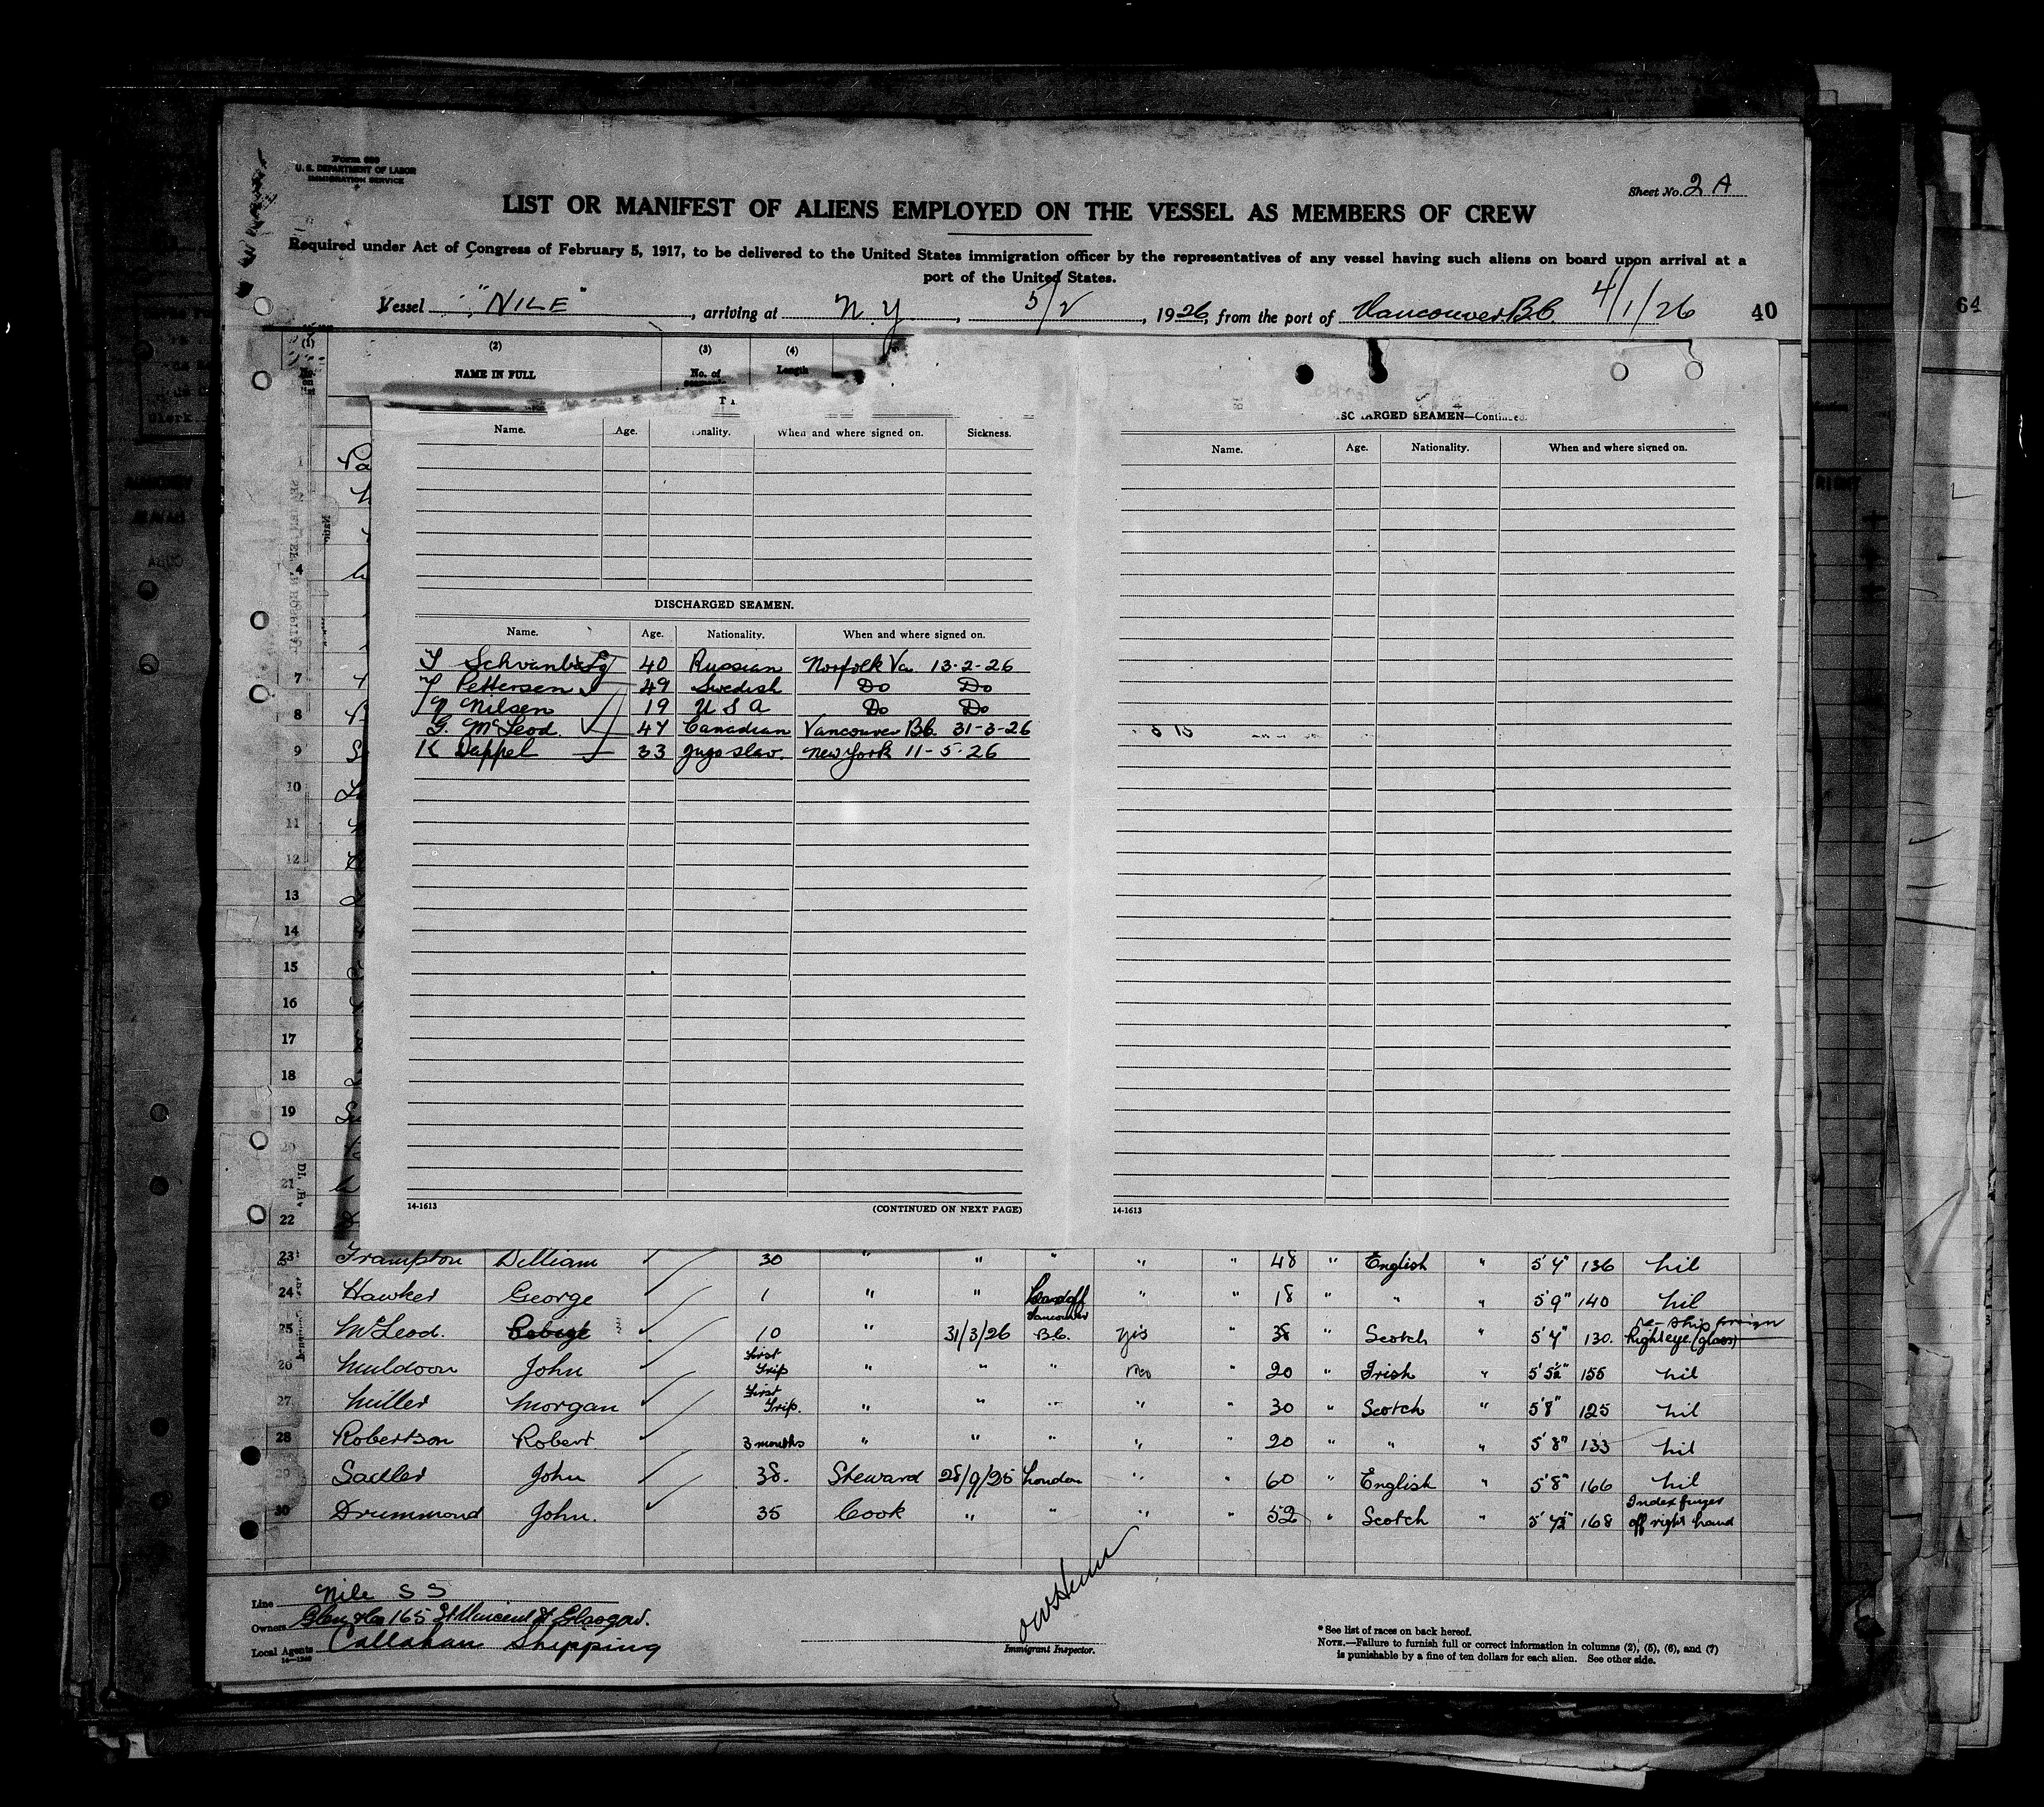 Form 680
U. S. DEPARTMENT OF LABOR
IMMIGRATION SERVICE
Sheet No. 2 A
LIST OR MANIFEST OF ALIENS EMPLOYED ON THE VESSEL AS MEMBERS OF CREW
Required under Act of Congress of February 5, 1917, to be delivered to the United States immigration officer by the representatives of any vessel having such aliens on board upon arrival at a
port of the United States.
Vessel "NILE", arriving at N. Y, 5/2, 1926, from the port of Vancouver B.C. 4/1/26 40
64
(1) (2) (3) (4)
NAME IN FULL No. of Length
Name. Age. When and where signed on. Sickness.
DISCHARGED SEAMEN.
Name. Age. Nationality. When and where signed on.
40 Russian Norfolk Va 13-2-26
Pettersen 49 Swedish Do Do
N Nilsen 19 U S A Do Do
G. McLeod. 47 Canadian Vancouver B.C. 31-3-26
K Dappel 33 Jugo slav. New York 11-5-26
14-1613 (CONTINUED ON NEXT PAGE)
SEAMEN—Continued.
Name. Age. Nationality. When and where signed on.
14-1613
4
7
8
9
10
11
12
13
14
15
16
17
18
19
20
21
22
23 Frampton William 30 " " " " " 48 " English " 5'4" 136 nil
24 Hawker George 1 " " Cardiff " " 18 " " " 5'9" 140 nil
25 McLeod. 10 " 31/3/26 Vancouver B.C. yes " 38 " Scotch " 5'4" 130. re-ship foreign Right eye (glass)
26 Muldoon John First Trip " " " No " 20 " Irish " 5'5½" 155 nil
27 Miller Morgan First Trip. " " " " " 30 " Scotch " 5'8" 125 nil
28 Robertson Robert 3 months " " " " " 20 " " " 5'8" 133 nil
29 Sadler John 38. Steward 28/9/25 London " " 60 " English " 5'8" 166 nil
30 Drummond John. 35 Cook " " " " 52 " Scotch " 5'4½" 168 Index finger off right hand
Line Nile S S
Owners Glen & Co 165 St Vincent St Glasgow.
Local Agents Callahan Shipping
Immigrant Inspector.
* See list of races on back hereof.
NOTE.—Failure to furnish full or correct information in columns (2), (5), (6), and (7)
is punishable by a fine of ten dollars for each alien. See other side.